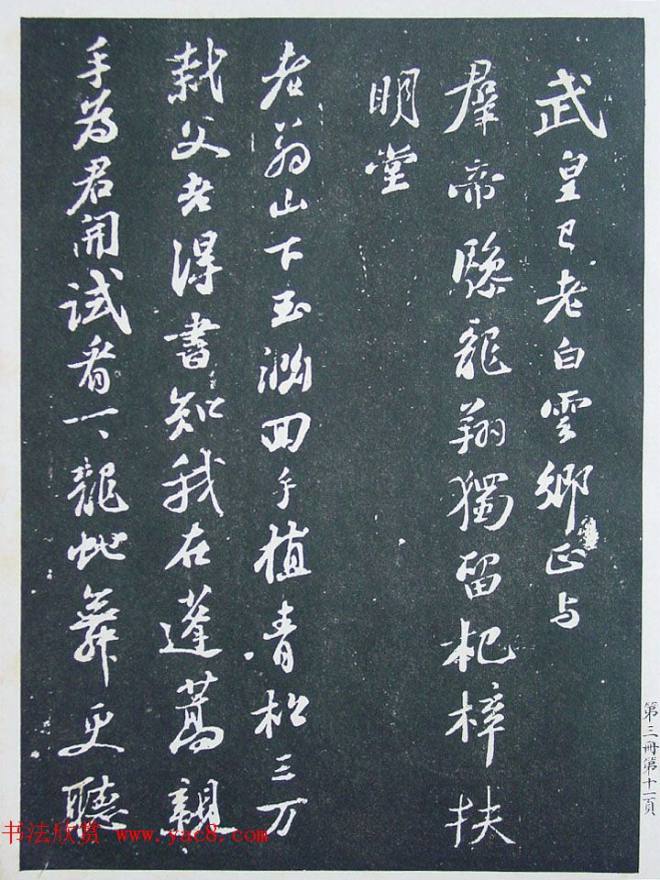 武皇已老白雲鄉正与
羣帝驂龍翔獨留杞梓扶
明堂
老翁山下玉淵回手植青松三万
栽父老得書知我在蓬蒿親
手為君開試看一、龍蛇舞更聽
第三冊第十一頁
书法欣赏 www.yac8.com